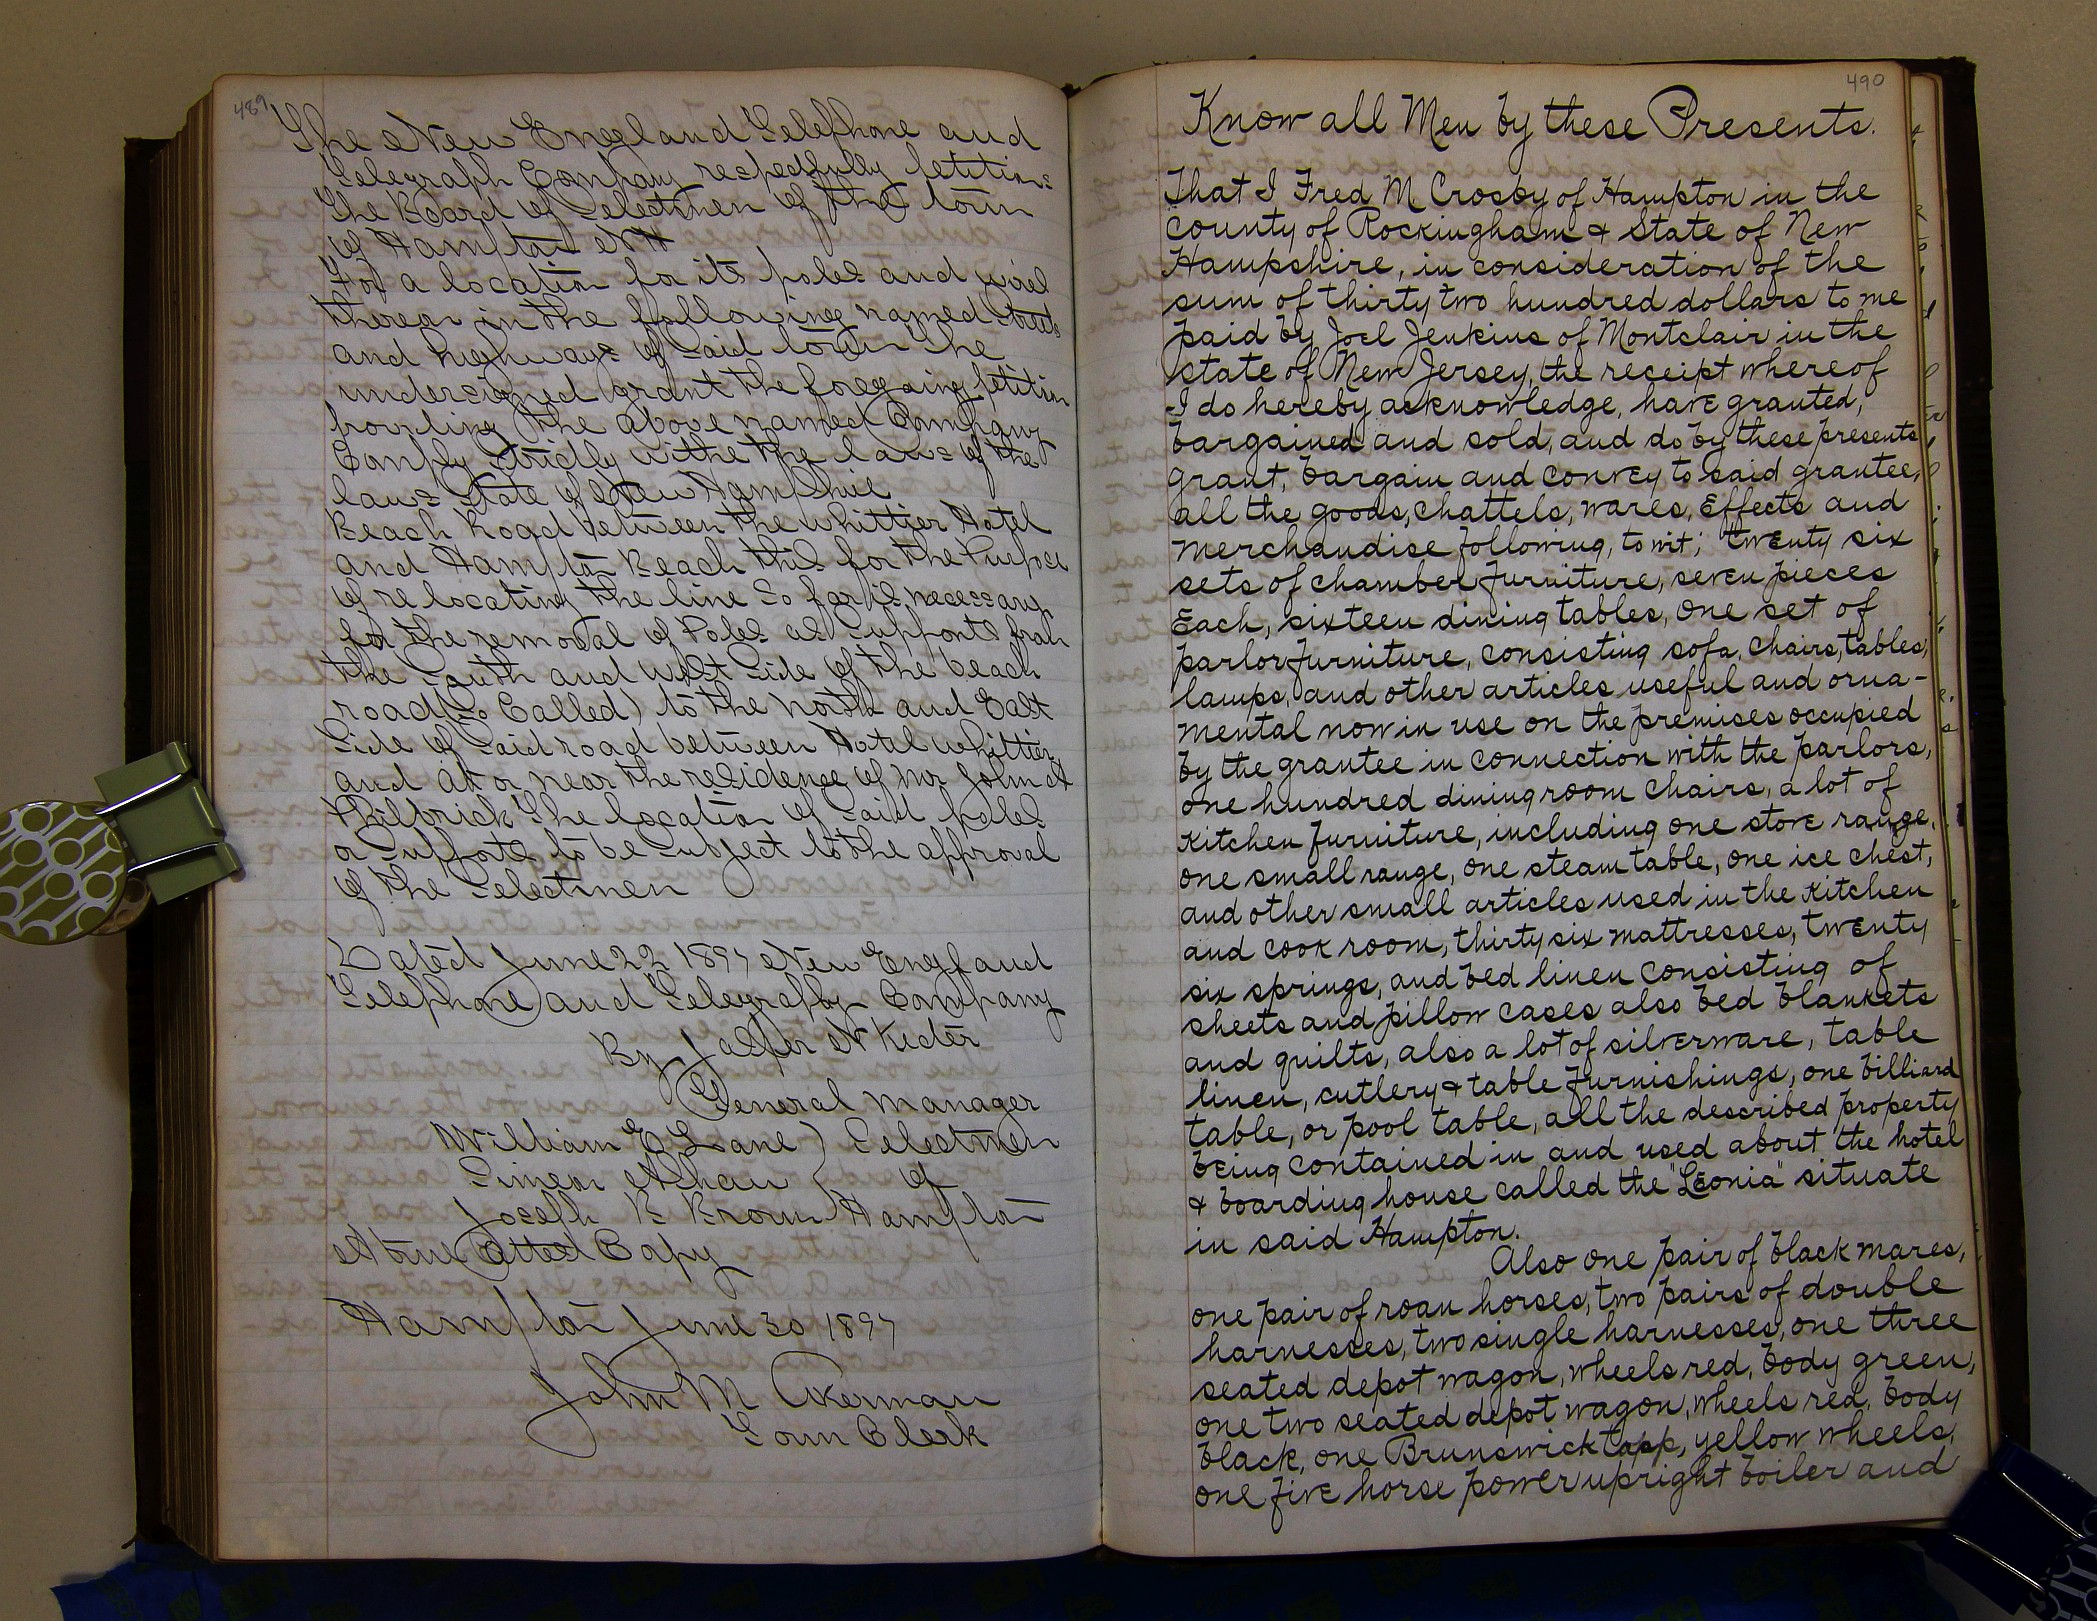 489
The New England Telephone and
Telegraph Company respectfully petitions
the Board of Selectmen of the town
of Hampton NH
For a location for its poles and wires
thereon in the following named Streets
and highways of Said town the
undersigned grant the foregoing petition
the above named Company
Comply Strictly withe the laws of the
laws State of New Hampshire
Beach Road between the whittier Hotel
and Hampton Beach this for the Purpose
of relocating the line So far is necessary
for the removal of Poles as Supports from
the South and West Side of the beach
road (So Called) to the north and East
Side of Said road between Hotel whittier
and at or near the residence of Mr John A
Philbrick The location of Said poles
or Supports to be Subject to the approval
of the Selectmen
Dated June 22 1897 New England
Telephone and Telegraph Company
By Jasper N Keeler
General Manager
William E Lane } Selectmen
Simeon A Shaw } of
Joseph B Brown Hampton
A true attest Copy
Hampton June 30 1897
John M Akerman
Town Clerk
490
Know all Men by these Presents.
That I Fred M Crosby of Hampton in the
County of Rockingham & State of New
Hampshire, in consideration of the
sum of thirty two hundred dollars to me
paid by Joel Jenkins of Montclair in the
state of New Jersey, the receipt whereof
I do hereby acknowledge, have granted,
bargained and sold, and do by these presents
grant, bargain and convey to said grantee,
all the goods, chattels, wares, Effects and
merchandise following, to wit; twenty six
sets of chamber furniture, seven pieces
Each, sixteen dining tables, one set of
parlor furniture, consisting sofa, chairs, tables,
lamps, and other articles useful and orna-
mental now in use on the premises occupied
by the grantee in connection with the parlors,
one hundred dining room chairs, a lot of
Kitchen furniture, including one stove range,
one small range, one steam table, one ice chest,
and other small articles used in the Kitchen
and cook room, thirty six mattresses, twenty
six springs, and bed linen consisting of
sheets and pillow cases also bed blankets
and quilts, also a lot of silverware, table
linen, cutlery & table furnishings, one billiard
table, or pool table, all the described property
being contained in and used about the hotel
& boarding house called the "Leonia" situate
in said Hampton.
Also one pair of black mares,
one pair of roan horses, two pairs of double
harnesses, two single harnesses, one three
seated depot wagon, wheels red, body green,
one two seated depot wagon, wheels red, body
black, one Brunswick topp, yellow wheels,
one five horse power upright boiler and